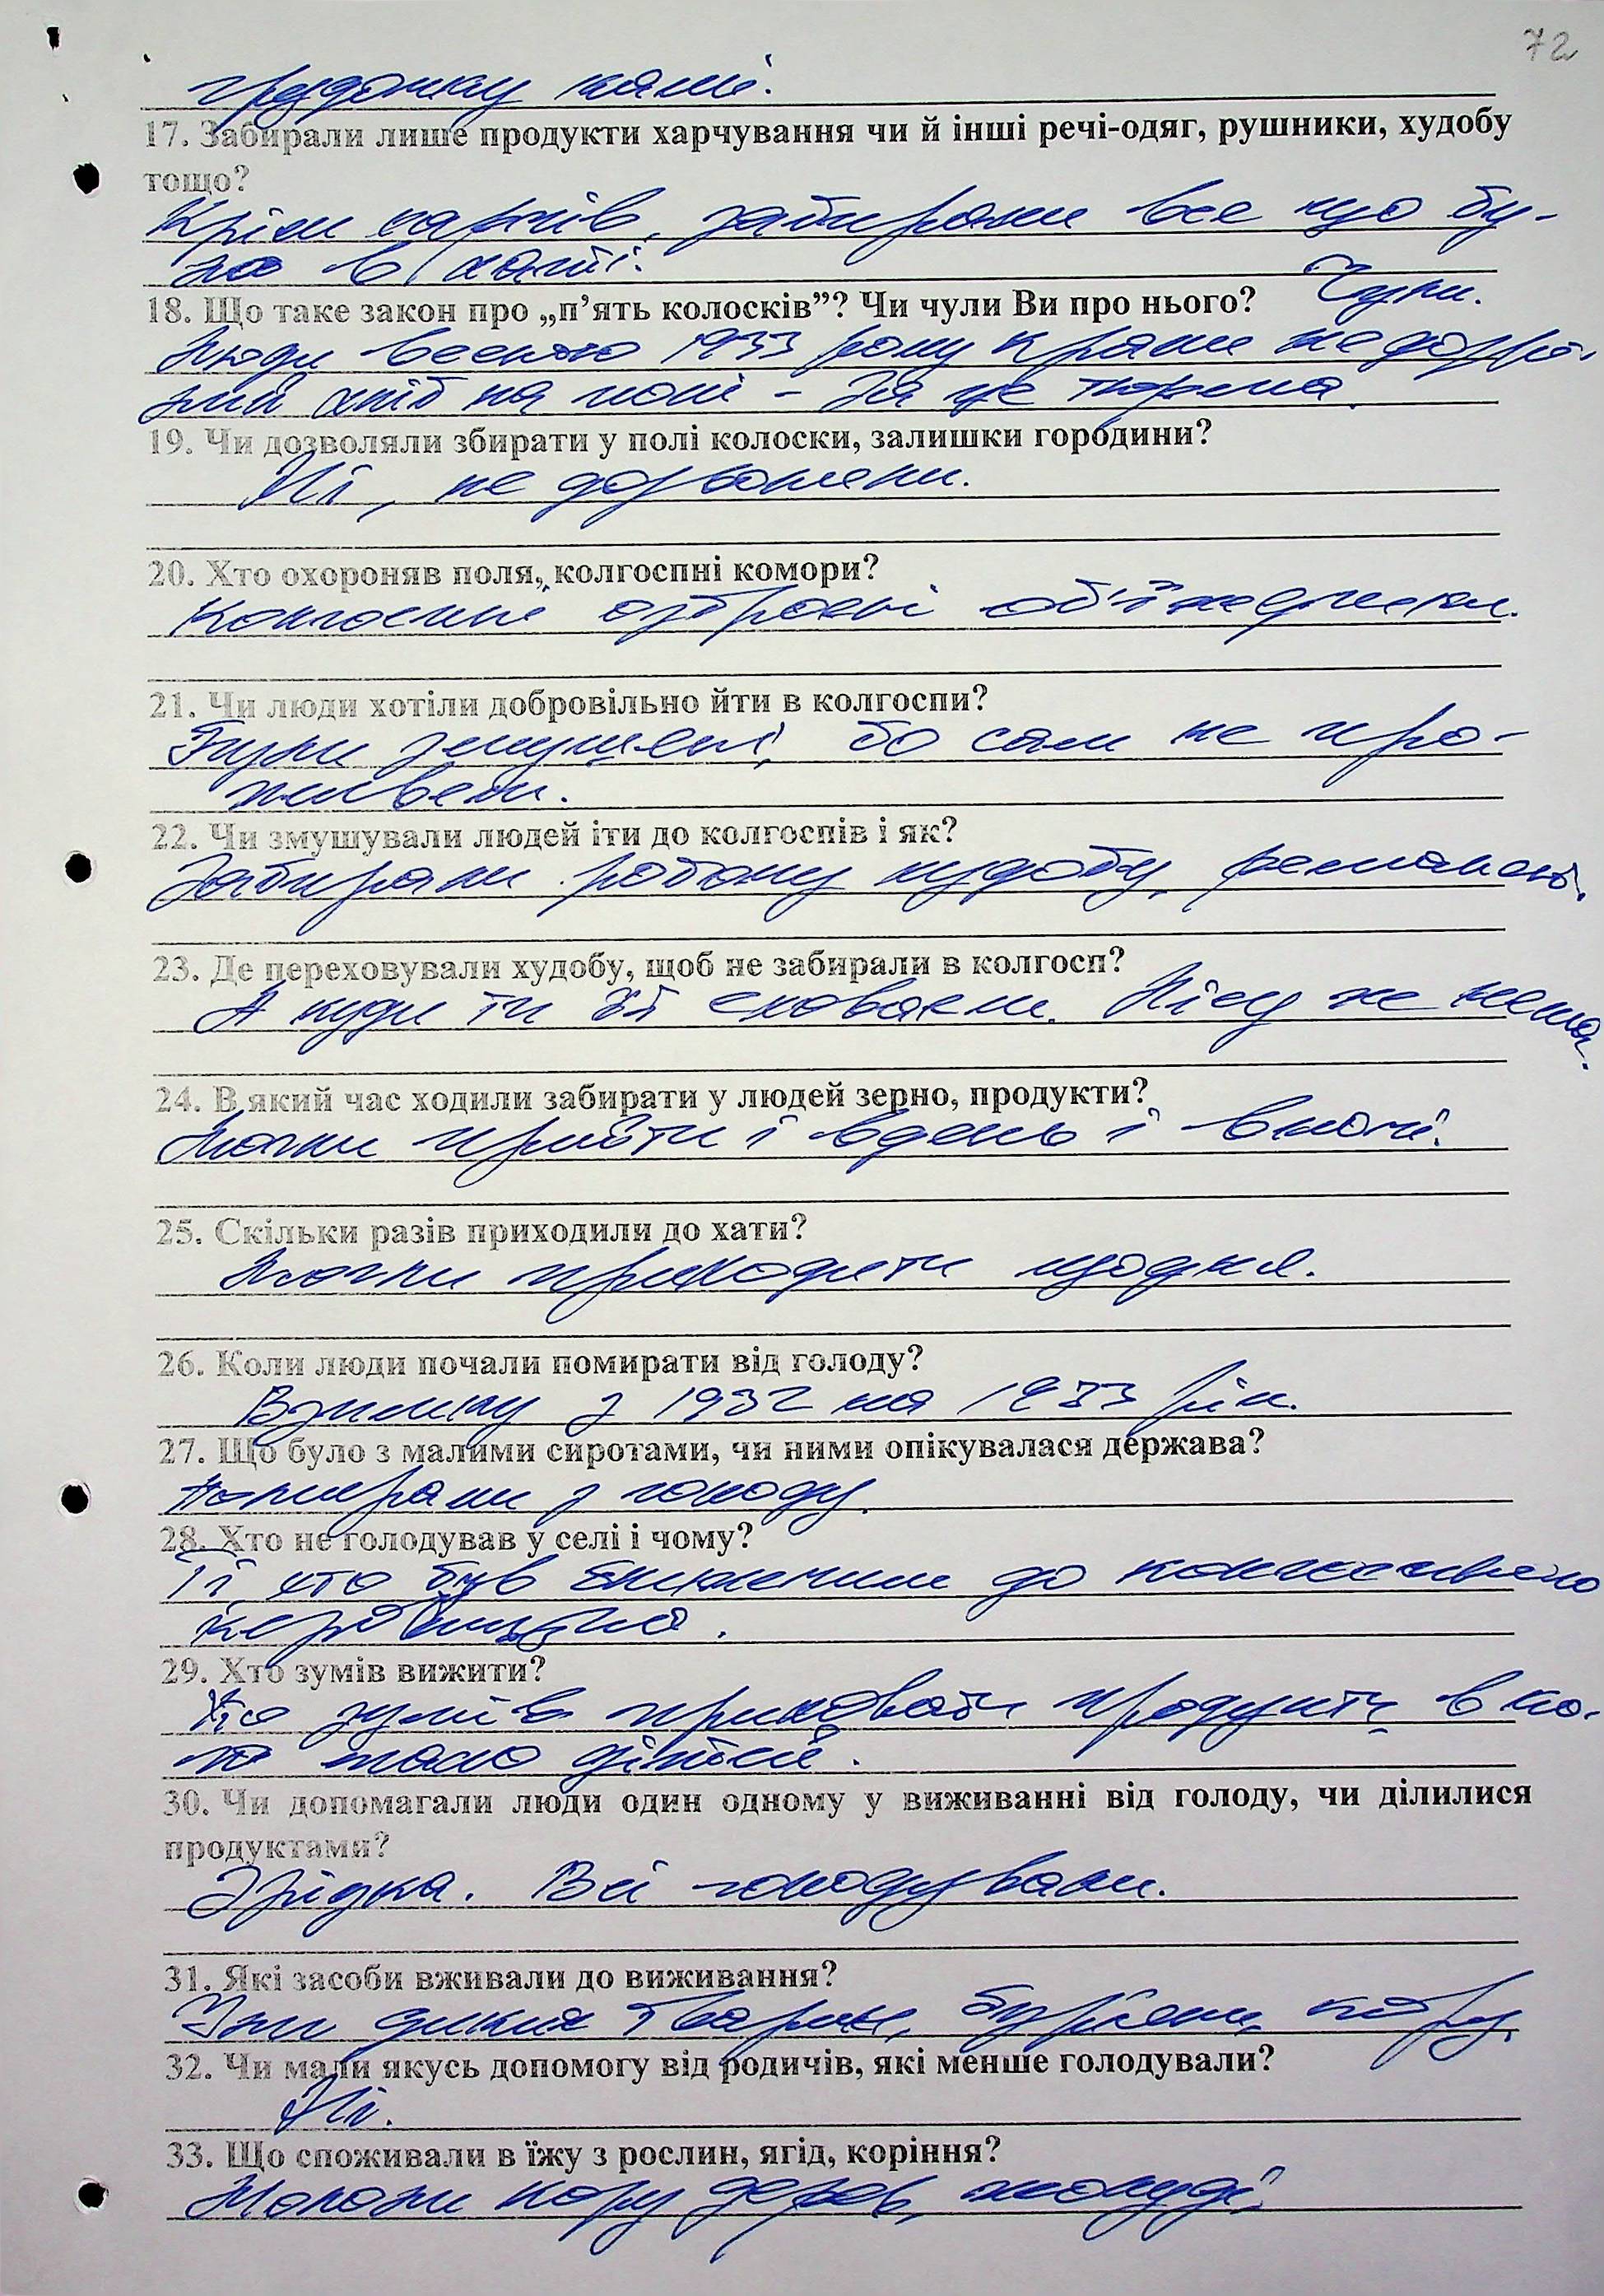 72
грудочку каші.
17. Забирали лише продукти харчування чи й інші речі-одяг, рушники, худобу
тощо?
Крім харчів, забирали все що бу-
ло в хаті.
18. Що таке закон про „п’ять колосків”? Чи чули Ви про нього? Чули.
Люди весною 1933 року крали недозрі-
лий хліб на полі - За це тюрма.
19. Чи дозволяли збирати у полі колоски, залишки городини?
Ні, не дозволяли.
20. Хто охороняв поля, колгоспні комори?
Колгоспні озброєні об'їждчики.
21. Чи люди хотіли добровільно йти в колгоспи?
Були змушені, бо сам не про-
живеш.
22. Чи змушували людей іти до колгоспів і як?
Забирали робочу худобу, реманент.
23. Де переховували худобу, щоб не забирали в колгосп?
А куди ти її сховаєш. Лісу же нема.
24. В який час ходили забирати у людей зерно, продукти?
Могли прийти і вдень і вночі.
25. Скільки разів приходили до хати?
Могли приходити щодня.
26. Коли люди почали помирати від голоду?
Взимку з 1932 на 1933 рік.
27. Що було з малими сиротами, чи ними опікувалася держава?
Помирали з голоду.
28. Хто не голодував у селі і чому?
Ті, хто був ближчим до колгоспного
керівництва.
29. Хто зумів вижити?
Хто зумів приховати продукти, в ко-
го мало дітей.
30. Чи допомагали люди один одному у виживанні від голоду, чи ділилися
продуктами?
Зрідка. Всі голодували.
31. Які засоби вживали до виживання?
Їли диких тварин, бур'яни, кору.
32. Чи мали якусь допомогу від родичів, які менше голодували?
Ні.
33. Що споживали в їжу з рослин, ягід, коріння?
Мололи кору дерев, жолуді.